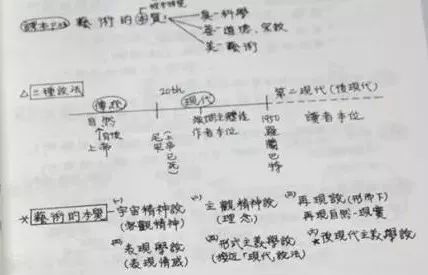 藝術的本質
真-科學
善-道德、宗教
美-藝術
△三種說法
傳統
20th
現代
第二現代(後現代)
自然
↑背後
上帝
尼采(上帝已死)
強調主體性
作者本位
1950
羅蘭巴特
讀者本位
※藝術的本質
(一)宇宙精神說
(客觀精神)
(二)主觀精神說
(理念)
(三)再現說(形而下)
再現自然、現實
(四)表現學說
(表現情感)
(五)形式主義學說
(接近「現代」說法)
(六)*後現代主義學說